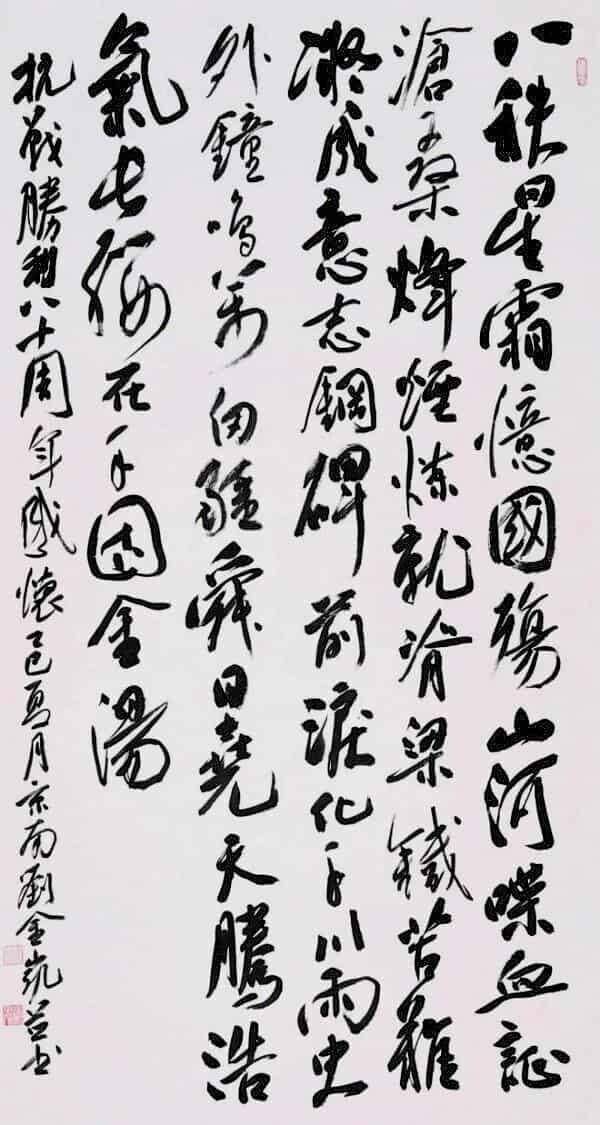 八秩星霜憶國殤山河喋血証
滄桑烽煙煉就脊梁鐵苦難
凝成意志鋼碑前淚化千川雨史
外鐘鳴萬疆舜日堯天騰浩
氣長纓在手固金湯
抗戰勝利八十周年感懷乙巳夏月京南劉金凱并书